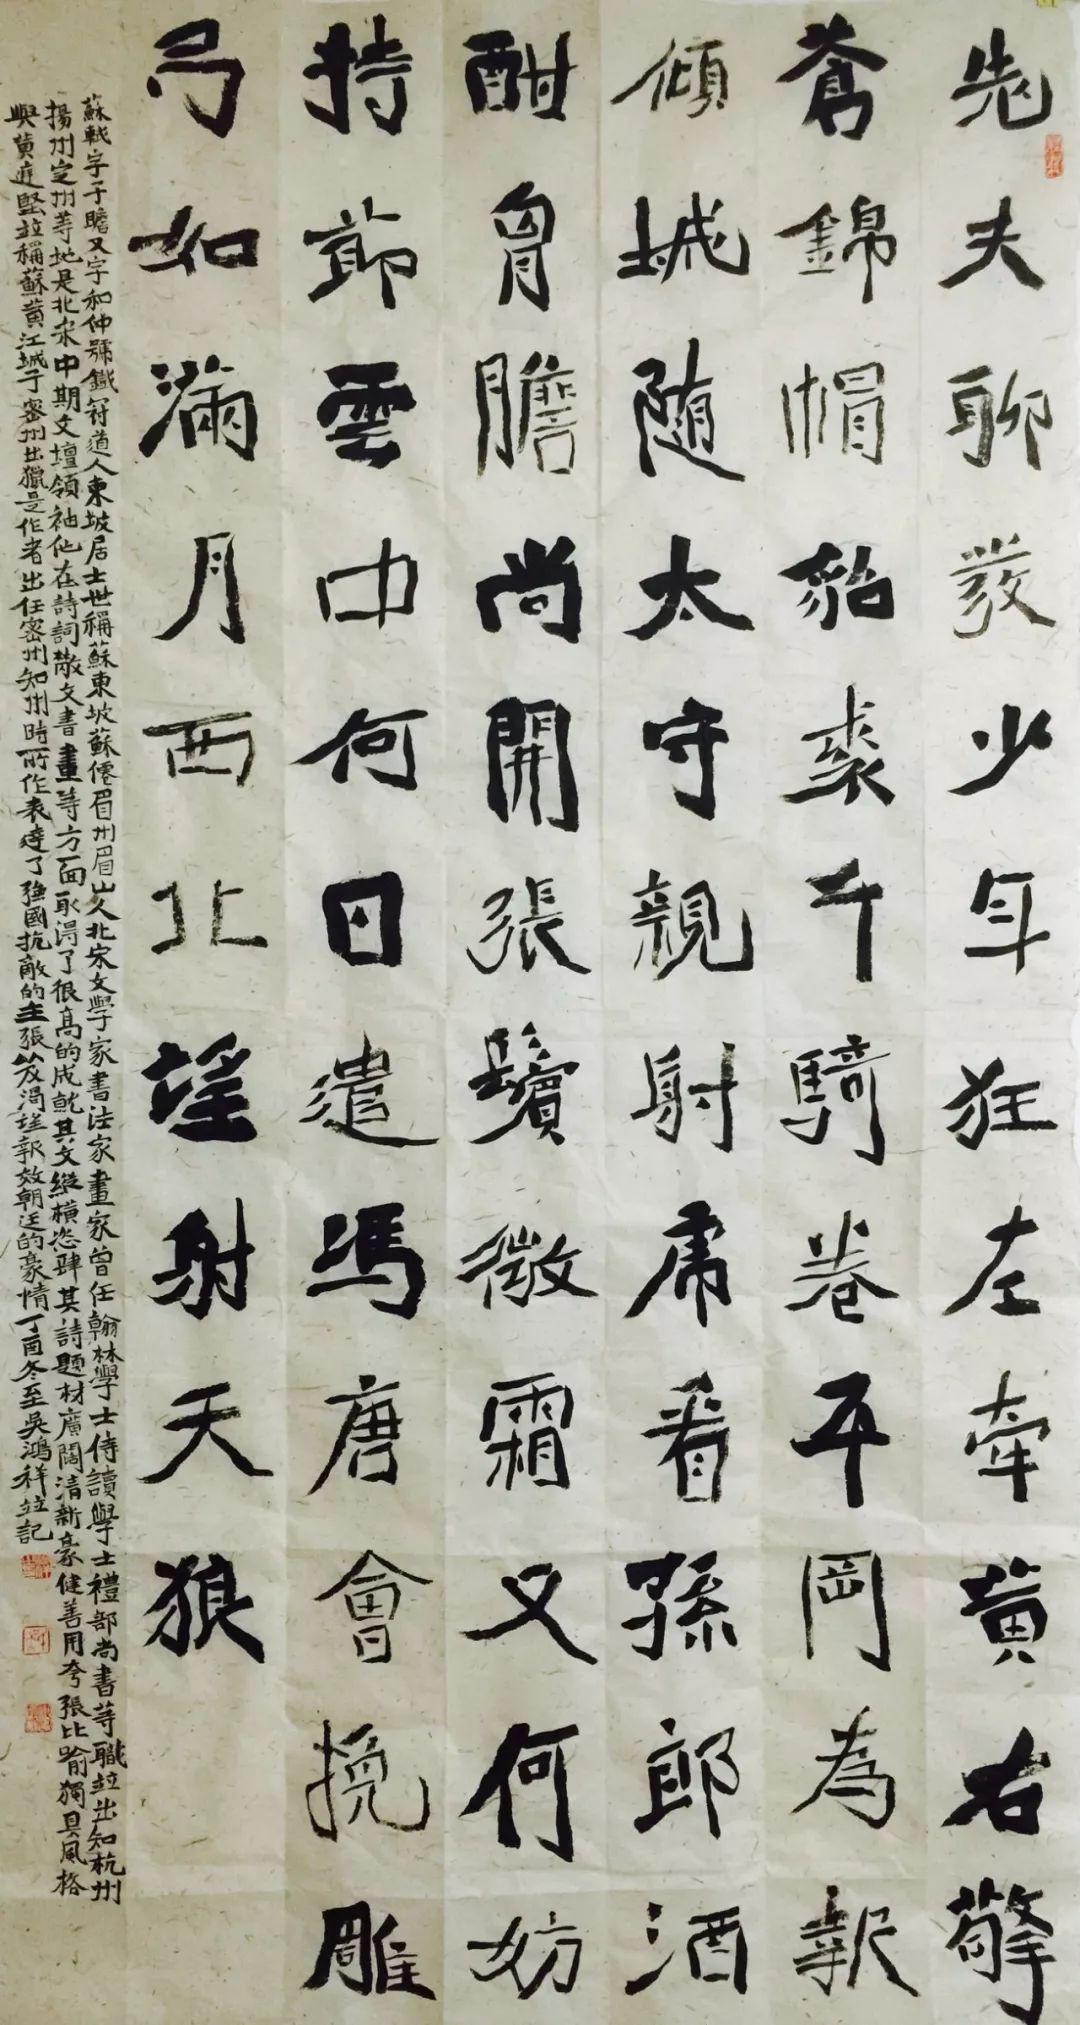 老夫聊發少年狂左牽黃右擎
蒼錦帽貂裘千騎卷平岡為報
傾城隨太守親射虎看孫郎酒
酣胷膽尚開張鬢微霜又何妨
持節雲中何日遣馮唐會挽雕
弓如滿月西北望射天狼
蘇軾字子瞻又字和仲號鐵冠道人東坡居士世稱蘇東坡蘇僊眉州眉山人北宋文學家書法家畫家曾任翰林學士侍讀學士禮部尚書等職並出知杭州
揚州定州等地是北宋中期文壇領袖他在詩詞散文書畫等方面取得了很高的成就其文縱橫恣肆其詩題材廣闊清新豪健善用夸張比喻獨具風格
與黃庭堅並稱蘇黃江城子密州出獵是作者出任密州知州時所作表達了強國抗敵的主張及渴望報效朝廷的豪情丁酉冬至吳鴻祥並記